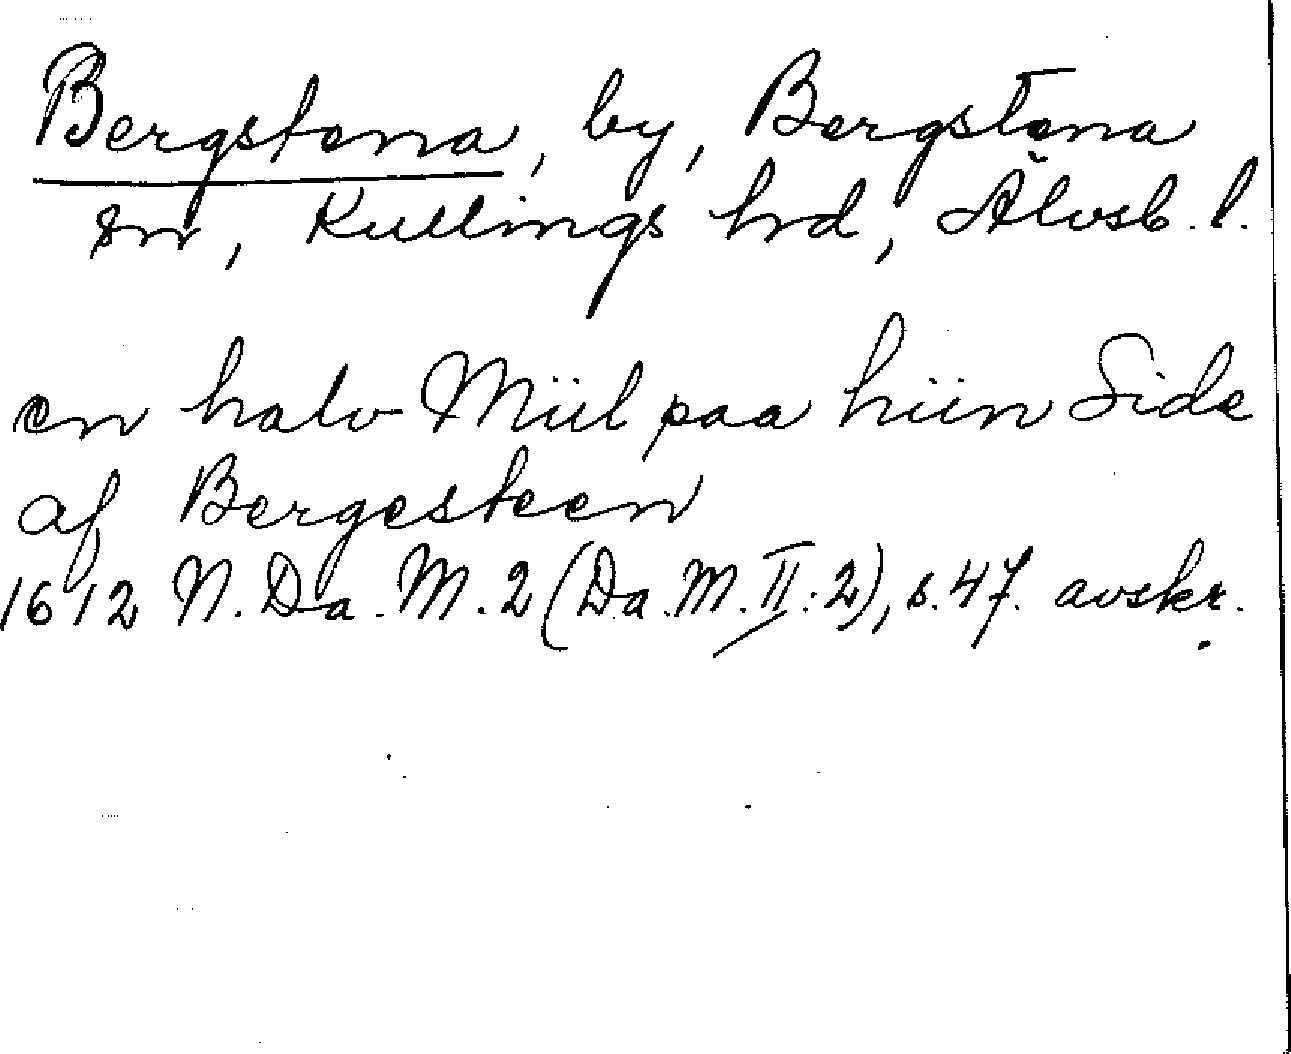 Bergstena, by, Bergstena
sn, Kullings hrd, Älvsb. l.
en halv Miil paa hiin Side
af Bergesteen
1612 N. Da. M. 2 (Da. M. II: 2), s. 47. avskr.